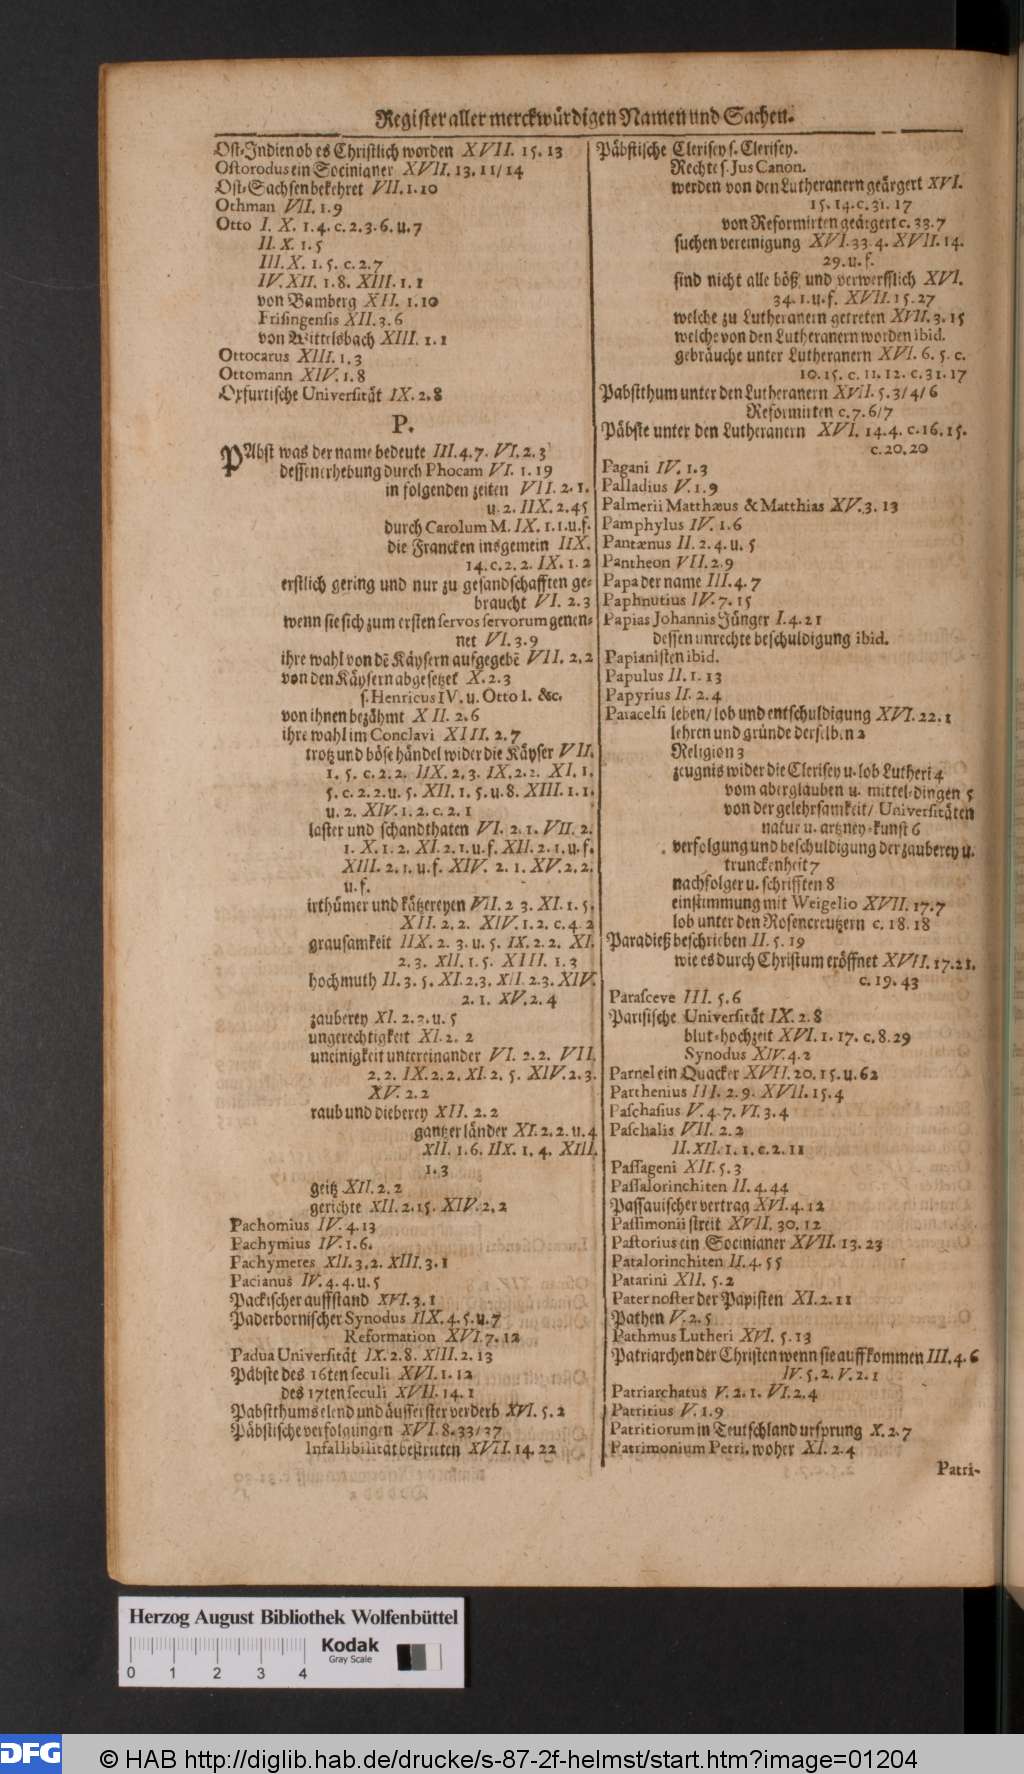 Register aller merckwürdigen Namen und Sachen.
Ost-Indien ob es Christlich worden XVII. 15. 13
Ostorodus ein Socinianer XVII. 13. 11/14
Ost-Sachsen bekehret VII. 1. 10
Othman VII. 1. 9
Otto I. X. 1. 4. c. 2. 3. 6. u. 7
II. X. 1. 5
III. X. 1. 5. c. 2. 7
IV. XII. 1. 8. XIII. 1. 1
von Bamberg XII. 1. 10
Frisingensis XII. 3. 6
von Wittelsbach XIII. 1. 1
Ottocarus XIII. 1. 3
Ottomann XIV. 1. 8
Oxfurtische Universität IX. 2. 8
P.
PAbst was der name bedeute III. 4. 7. VI. 2. 3
dessen erhebung durch Phocam VI. 1. 19
in folgenden zeiten VII. 2. 1.
u. 2. IIX. 2. 45
durch Carolum M. IX. 1. 1. u. f.
die Francken insgemein IIX.
14. c. 2. 2. IX. 1. 2
erstlich gering und nur zu gesandschafften ge-
braucht VI. 2. 3
wenn sie sich zum ersten servos servorum genen-
net VI. 3. 9
ihre wahl von dē Käysern aufgegebē VII. 2. 2
von den Käysern abgesetzet X. 2. 3
s. Henricus IV. u. Otto I. &c.
von ihnen bezähmt XII. 2. 6
ihre wahl im Conclavi XIII. 2. 7
trotz und böse händel wider die Käyser VII.
1. 5. c. 2. 2. IIX. 2. 3. IX. 2. 2. XI. 1.
5. c. 2. 2. u. 5. XII. 1. 5. u. 8. XIII. 1. 1.
u. 2. XIV. 1. 2. c. 2. 1
laster und schandthaten VI. 2. 1. VII. 2.
1. X. 1. 2. XI. 2. 1. u. f. XII. 2. 1. u. f.
XIII. 2. 1. u. f. XIV. 2. 1. XV. 2. 2.
u. f.
irthümer und kätzereyen VII. 2 3. XI. 1. 5.
XII. 2. 2. XIV. 1. 2. c. 4. 2
grausamkeit IIX. 2. 3. u. 5. IX. 2. 2. XI.
2. 3. XII. 1. 5. XIII. 1. 3
hochmuth II. 3. 5. XI. 2. 3. XII. 2. 3. XIV.
2. 1. XV. 2. 4
zauberey XI. 2. 2. u. 5
ungerechtigkeit XI. 2. 2
uneinigkeit untereinander VI. 2. 2. VII.
2. 2. IX. 2. 2. XI. 2. 5. XIV. 2. 3.
XV. 2. 2
raub und dieberey XII. 2. 2
gantzer länder XI. 2. 2. u. 4
XII. 1. 6. IIX. 1. 4. XIII.
1. 3
geitz XII. 2. 2
gerichte XII. 2. 15. XIV. 2. 2
Pachomius IV. 4. 13
Pachymius IV. 1. 6.
Pachymeres XII. 3. 2. XIII. 3. 1
Pacianus IV. 4. 4. u. 5
Packischer auffstand XVI. 3. 1
Paderbornischer Synodus IIX. 4. 5. u. 7
Reformation XVI. 7. 12
Padua Universität IX. 2. 8. XIII. 2. 13
Päbste des 16ten seculi XVI. 1. 12
des 17ten seculi XVII. 14. 1
Pabstthums elend und äusserster verderb XVI. 5. 2
Päbstische verfolgungen XVI. 8. 33/37
Infallibilität bestritten XVII. 14. 22
Päbstische Clerisey s. Clerisey.
Rechte s. Jus Canon.
werden von den Lutheranern geärgert XVI.
15. 14. c. 31. 17
von Reformirten geärgert c. 33. 7
suchen vereinigung XVI. 33. 4. XVII. 14.
29. u. f.
sind nicht alle böß und verwerfflich XVI.
34. 1. u. f. XVII. 15. 27
welche zu Lutheranern getreten XVII. 3. 15
welche von den Lutheranern worden ibid.
gebräuche unter Lutheranern XVI. 6. 5. c.
10. 15. c. 11. 12. c. 31. 17
Pabstthum unter den Lutheranern XVII. 5. 3/4/6
Reformirten c. 7. 6/7
Päbste unter den Lutheranern XVI. 14. 4. c. 16. 15.
c. 20. 20
Pagani IV. 1. 3
Palladius V. 1. 9
Palmerii Matthæus & Matthias XV. 3. 13
Pamphylus IV. 1. 6
Pantænus II. 2. 4. u. 5
Pantheon VII. 2. 9
Papa der name III. 4. 7
Paphnutius IV. 7. 15
Papias Johannis Jünger I. 4. 21
dessen unrechte beschuldigung ibid.
Papianisten ibid.
Papulus II. 1. 13
Papyrius II. 2. 4
Paracelsi leben/ lob und entschuldigung XVI. 22. 1
lehren und gründe derselben 2
Religion 3
zeugnis wider die Clerisey u. lob Lutheri 4
vom aberglauben u. mittel-dingen 5
von der gelehrsamkeit/ Universitäten
natur u. artzney-kunst 6
verfolgung und beschuldigung der zauberey u.
trunckenheit 7
nachfolger u. schrifften 8
einstimmung mit Weigelio XVII. 17. 7
lob unter den Rosencreutzern c. 18. 18
Paradieß beschrieben II. 5. 19
wie es durch Christum eröffnet XVII. 17. 21.
c. 19. 43
Parasceve III. 5. 6
Parisische Universität IX. 2. 8
blut-hochzeit XVI. 1. 17. c. 8. 29
Synodus XIV. 4. 2
Parnel ein Quacker XVII. 20. 15. u. 62
Parthenius III. 2. 9. XVII. 15. 4
Paschasius V. 4. 7. VI. 3. 4
Paschalis VII. 2. 2
II. XII. 1. 1. c. 2. 11
Passageni XII. 5. 3
Passalorinchiten II. 4. 44
Passauischer vertrag XVI. 4. 12
Passimonii streit XVII. 30. 12
Pastorius ein Socinianer XVII. 13. 23
Patalorinchiten II. 4. 55
Patarini XII. 5. 2
Pater noster der Papisten XI. 2. 11
Pathen V. 2. 5
Pathmus Lutheri XVI. 5. 13
Patriarchen der Christen wenn sie auffkommen III. 4. 6
IV. 5. 2. V. 2. 1
Patriarchatus V. 2. 1. VI. 2. 4
Patritius V. 1. 9
Patritiorum in Teutschland ursprung X. 2. 7
Patrimonium Petri, woher XI. 2. 4
Patri-
Herzog August Bibliothek Wolfenbüttel
Kodak
Gray Scale
0 1 2 3 4
DFG
© HAB http://diglib.hab.de/drucke/s-87-2f-helmst/start.htm?image=01204